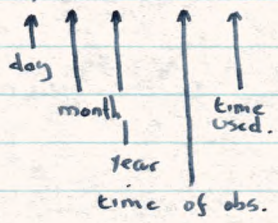 day
month
time
used.
year
time of obs.